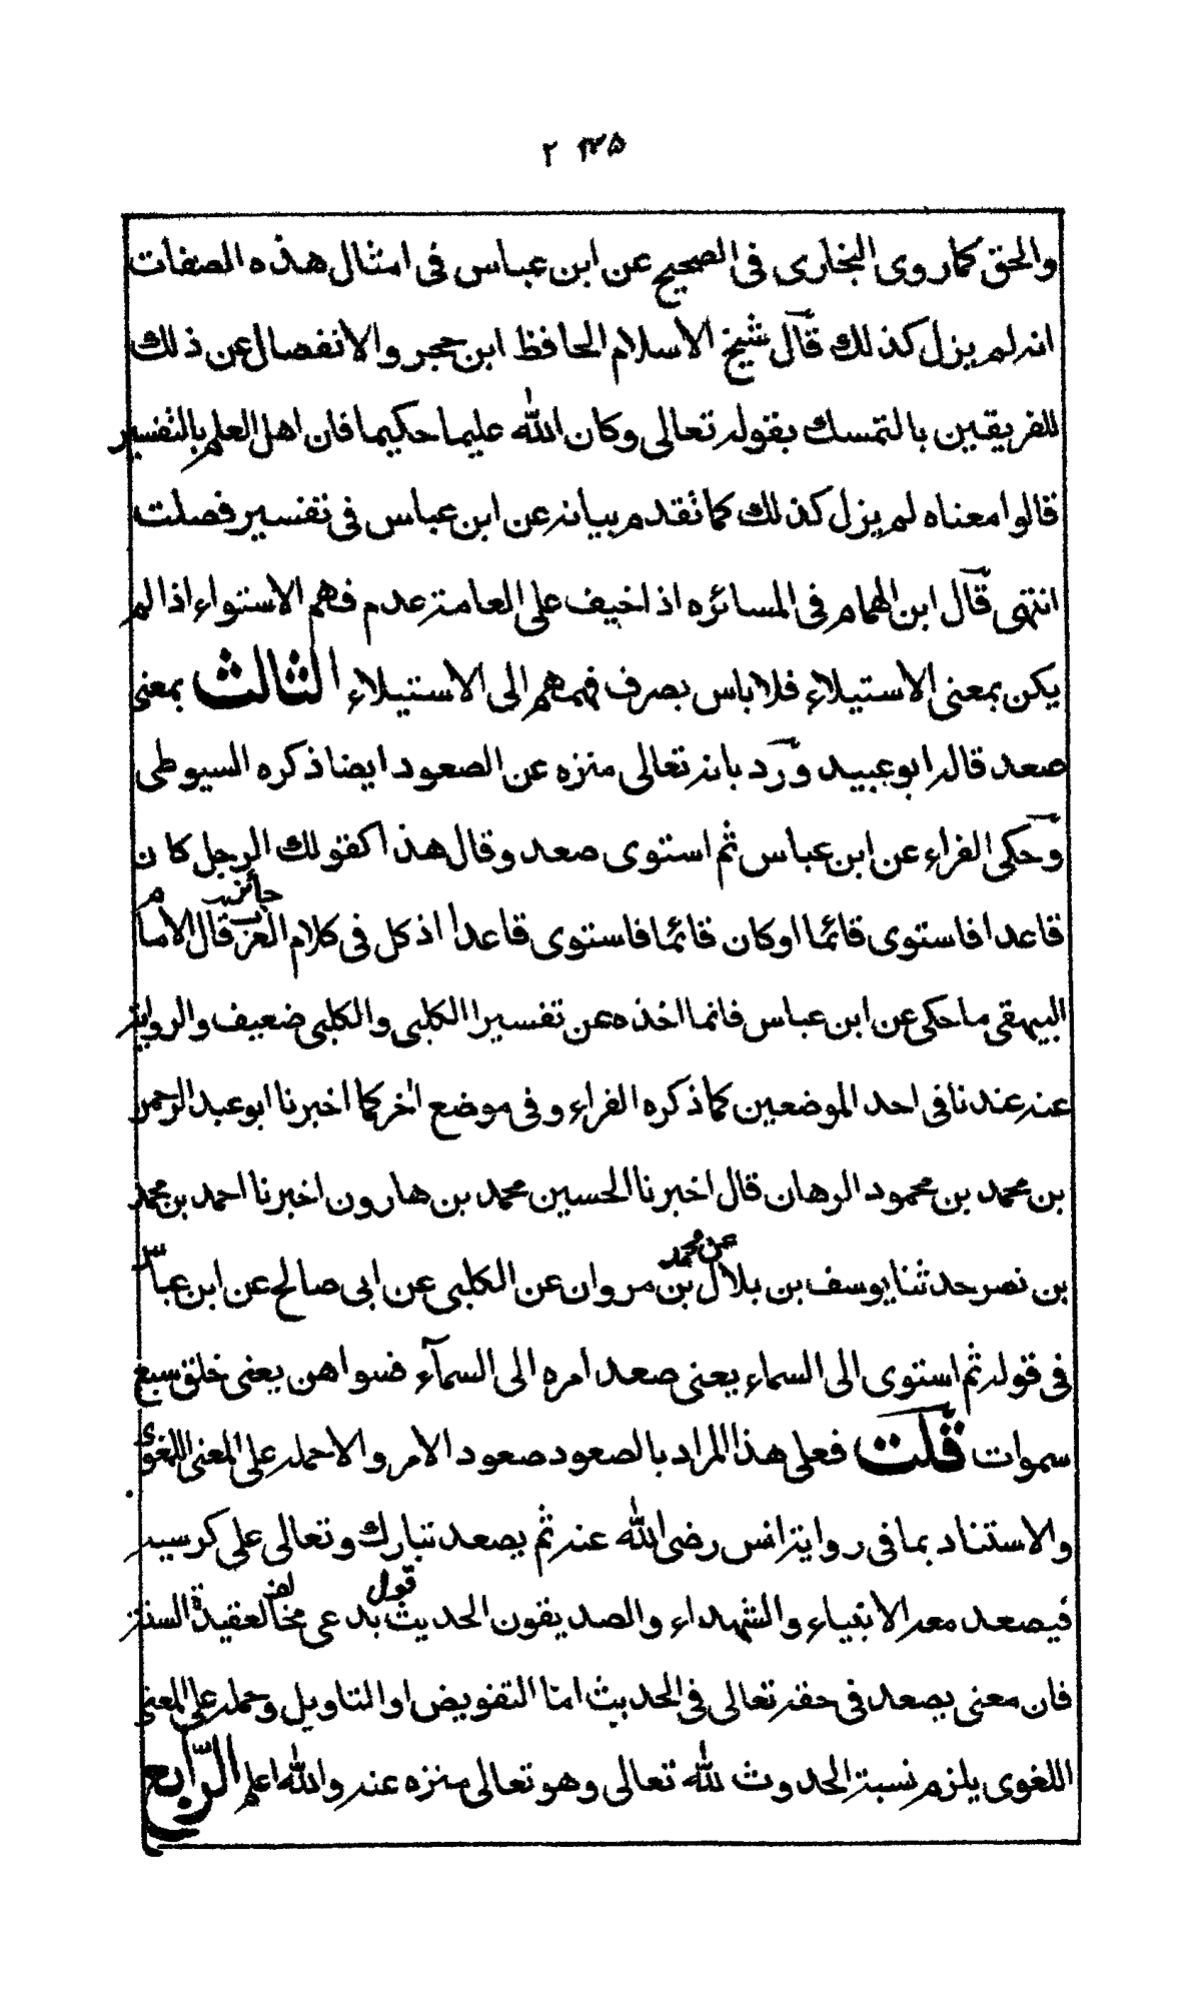 ٢ ٣٢٥
والحق كما روى البخارى فى الصحيح عن ابن عباس فى امثال هذه الصفات
انه لم يزل كذلك قال شيخ الاسلام الحافظ ابن حجر والانفصال عن ذلك
للفريقين بالتمسك بقوله تعالى وكان الله عليما حكيما فان اهل العلم بالتفسير
قالوا معناه لم يزل كذلك كما تقدم بيانه عن ابن عباس فى تفسير فصلت
انتهى قال ابن الهمام فى المسائره اذا خيف على العامة عدم فهم الاستواء اذا لم
يكن بمعنى الاستيلاء فلا باس بصرف فهمهم الى الاستيلاء الثالث بمعنى
صعد قاله ابو عبيد ورد بانه تعالى منزه عن الصعود ايضا ذكره السيوطى
وحكى الفراء عن ابن عباس ثم استوى صعد وقال هذا كقولك الرجل كان
قاعدا فاستوى قائما او كان قائما فاستوى قاعدا اذ كل فى كلام العرب جائز قال الامام
البيهقى ما حكى عن ابن عباس فانما اخذه عن تفسير الكلبى والكلبى ضعيف والرواية
عنه عندنا فى احد الموضعين كما ذكره الفراء وفى موضع اخر كما اخبرنا ابو عبد الرحمن
بن محمد بن محمود الرهان قال اخبرنا الحسين محمد بن هارون اخبرنا احمد بن محمد
بن نصر حدثنا يوسف بن بلال عن محمد بن مروان عن الكلبى عن ابى صالح عن ابن عباس
فى قوله ثم استوى الى السماء يعنى صعد امره الى السمآء فسواهن يعنى خلق سبع
سموات قلت فعلى هذا المراد بالصعود صعود الامر والا حمله على المعنى اللغوى
والاستناد بما فى رواية انس رضى الله عنه ثم يصعد تبارك وتعالى على كرسيه
فيصعد معه الانبياء والشهداء والصديقون الحديث قول بدعى مخالف لعقيدة السنة
فان معنى يصعد فى حقه تعالى فى الحديث اما التفويض او التاويل وحمله على المعنى
اللغوى يلزم نسبة الحدوث لله تعالى وهو تعالى منزه عنه والله اعلم الرّابع